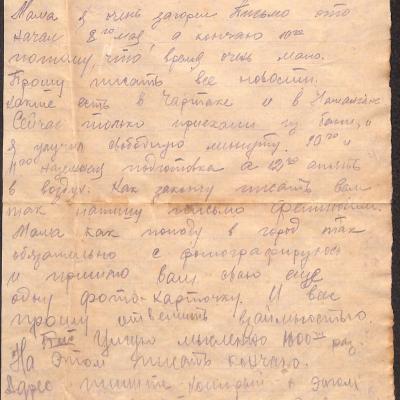 Мама я очень загорел Письмо это
начал 8го мая, а кончаю 10го
потому, что время очень мало.
Прошу писать все новости.
какие есть в Чартаке и в Намангане
Сейчас только приехали из бани, и
я улучил свободную минуту. 10го и
11го наземная подготовка а 12го опять
в воздух. Как закончу писать вам
так напишу письмо
Мама как попаду в город так
обязательно с фотографируюсь
и пришлю вам свою еще
одну фото-карточку. И вас
прошу ответить взаимностью.
Целую мысленно 1000 раз.
На этом писать кончаю.
Адрес пишите который в этом